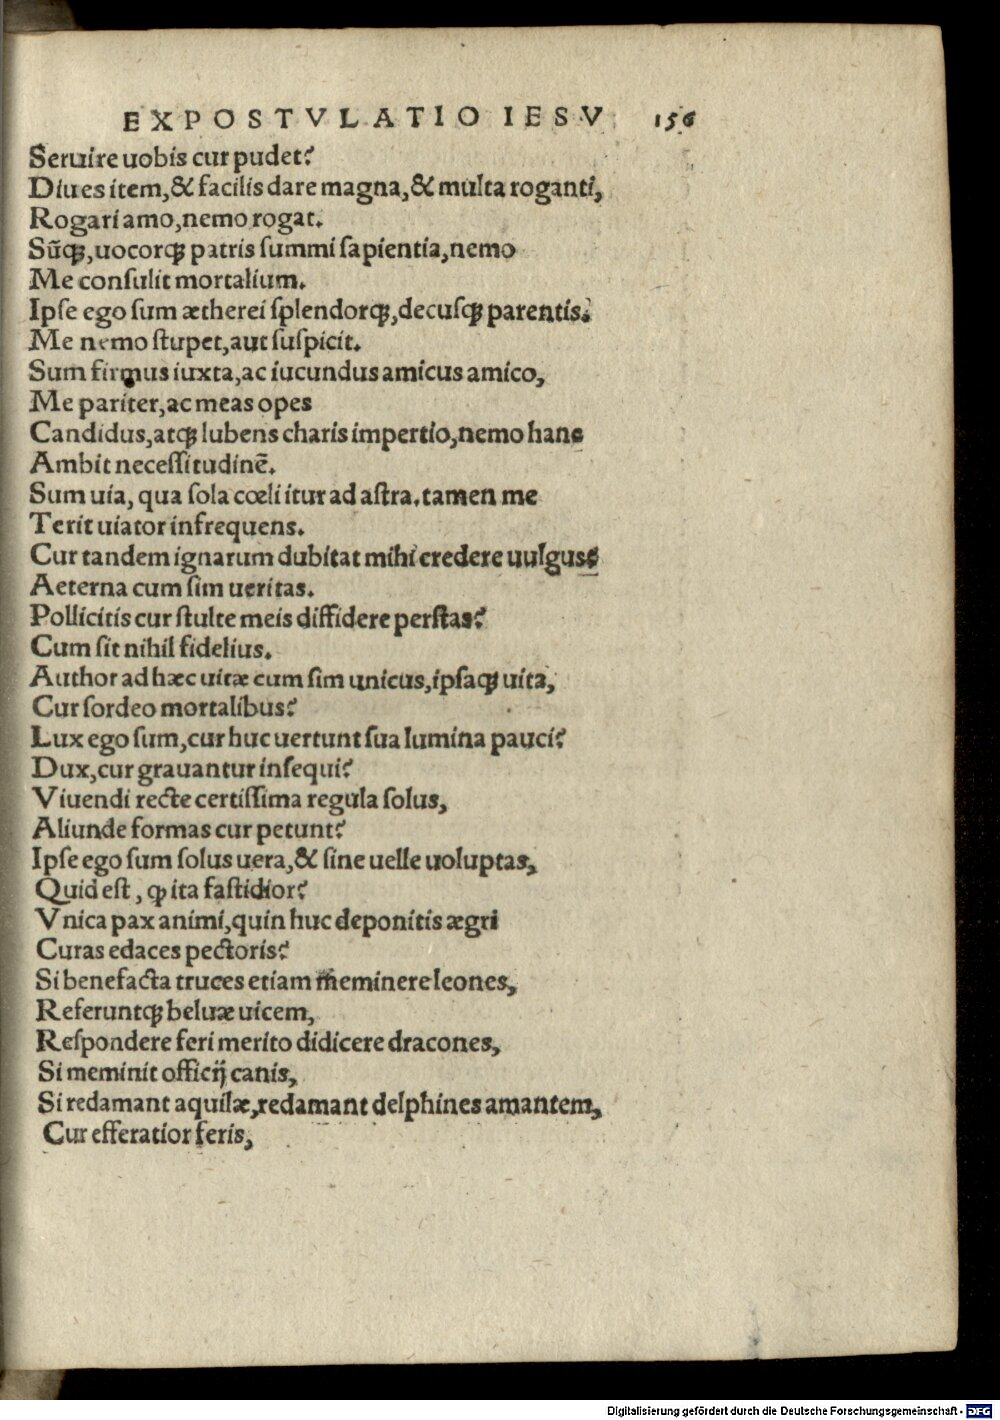 EXPOSTVLATIO IESV 156
Seruire uobis cur pudet?
Diues item,& facilis dare magna,& multa roganti,
Rogari amo,nemo rogat.
Sūqꝫ,uocorqꝫ patris summi sapientia,nemo
Me consulit mortalium.
Ipse ego sum ætherei splendorqꝫ,decusqꝫ parentis.
Me nemo stupet,aut suspicit.
Sum firmus iuxta,ac iucundus amicus amico,
Me pariter,ac meas opes
Candidus,atqꝫ lubens charis impertio,nemo hanc
Ambit necessitudinē.
Sum uia, qua sola cœli itur ad astra.tamen me
Terit uiator infrequens.
Cur tandem ignarum dubitat mihi credere uulgus?
Aeterna cum sim ueritas.
Pollicitis cur stulte meis diffidere perstas?
Cum sit nihil fidelius.
Author ad hæc uitæ cum sim unicus,ipsaqꝫ uita,
Cur sordeo mortalibus?
Lux ego sum,cur huc uertunt sua lumina pauci?
Dux,cur grauantur insequi?
Viuendi recte certissima regula solus,
Aliunde formas cur petunt?
Ipse ego sum solus uera,& sine uelle uoluptas,
Quid est , ꝙ ita fastidior?
Vnica pax animi,quin huc deponitis ægri
Curas edaces pectoris?
Si benefacta truces etiam meminere leones,
Referuntqꝫ beluæ uicem,
Respondere feri merito didicere dracones,
Si meminit officij canis,
Si redamant aquilæ,redamant delphines amantem,
Cur efferatior feris,
Digitalisierung gefördert durch die Deutsche Forschungsgemeinschaft - DFG